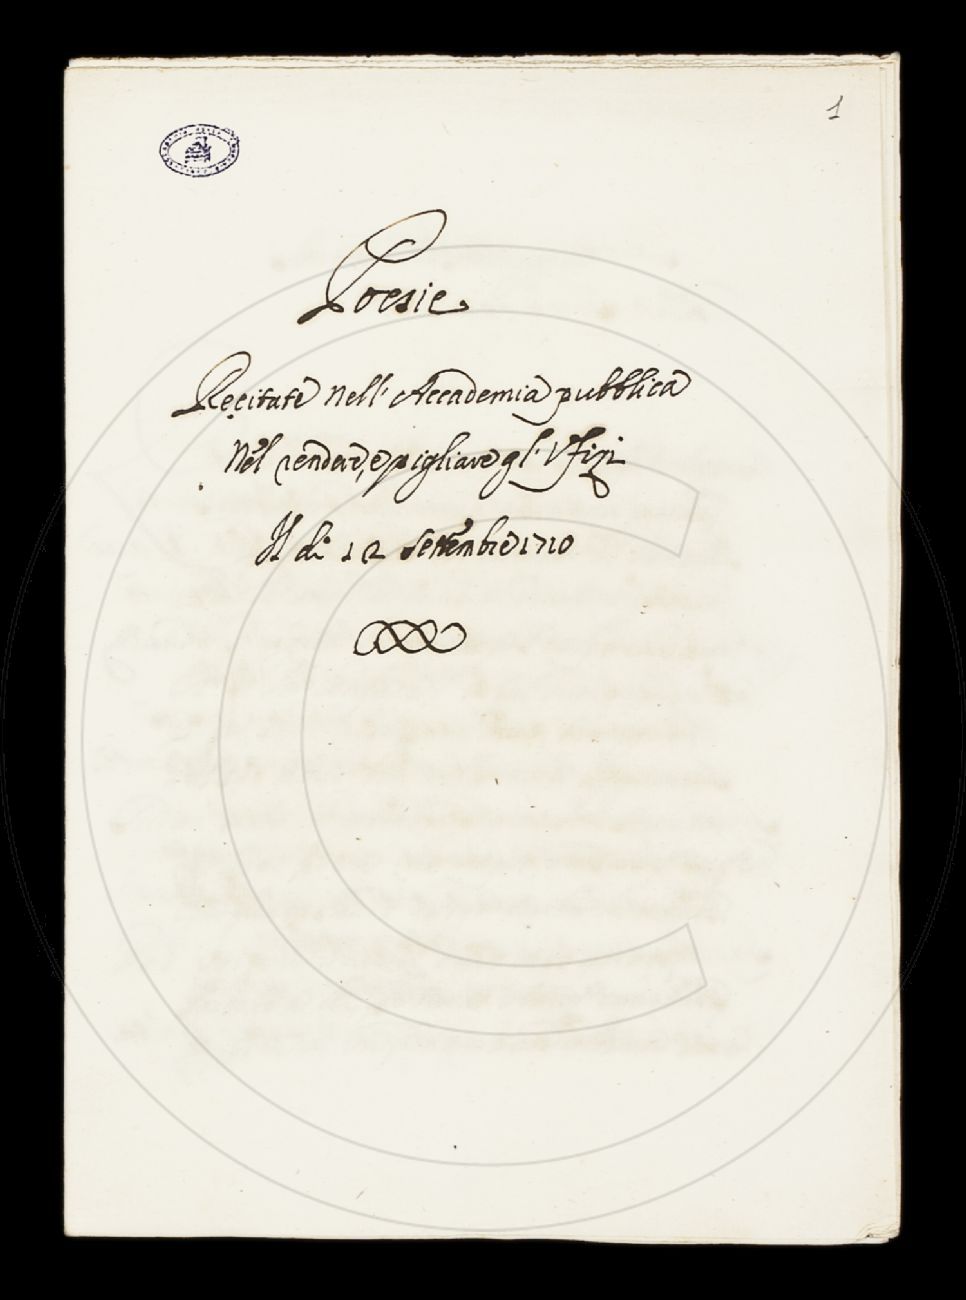 1
Poesie
Recitate nell' Accademia pubblica
Nel rendere, e pigliare gl' Ufizi
Il dì 12 Settembre 1710